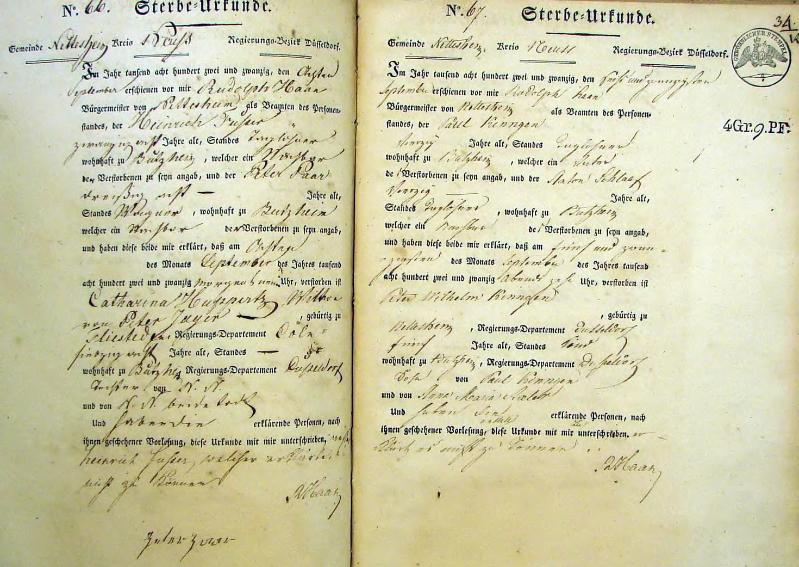 No. 66. Sterbe-Urkunde.
Gemeinde Nettesheim Kreis Neuß Regierungs-Bezirk Düsseldorf.
Im Jahr tausend acht hundert zwei und zwanzig, den Achten
September erschienen vor mir Rudolph Haan
Bürgermeister von Nettesheim als Beamten des Personen-
standes, der Heinrich
zwanzig acht Jahre alt, Standes Taglöhner
wohnhaft zu Butzheim, welcher ein Nachbar
des Verstorbenen zu seyn angab, und der Peter Paar
dreißig acht — Jahre alt,
Standes Wagner, wohnhaft zu Butzheim
welcher ein Nachbar der Verstorbenen zu seyn angab,
und haben diese beide mir erklärt, daß am Achten
des Monats September des Jahres tausend
acht hundert zwei und zwanzig morgens neun Uhr, verstorben ist
Catharina Huppertz Wittwe
von Peter , gebürtig zu
Fliesteden Regierungs-Departement Cöln
siebzig acht Jahre alt, Standes —
wohnhaft zu Butzheim Regierungs-Departement Düsseldorf
Tochter von N. N.
und von N. N. beide todt
Und haben die erklärende Personen, nach
ihnen geschehener Vorlesung, diese Urkunde mit mir unterschrieben,
Heinrich welcher erklärte
nicht zu können
RHaan
Peter Paar
No. 67. Sterbe-Urkunde.
34
4Gr.9.PF.
Gemeinde Nettesheim, Kreis Neuss Regierungs-Bezirk Düsseldorf.
Im Jahr tausend acht hundert zwei und zwanzig, den
September erschienen vor mir Rudolph Haan
Bürgermeister von Nettesheim als Beamten des Personen-
standes, der Paul Rinngen
vierzig Jahre alt, Standes Taglöhner
wohnhaft zu Butzheim, welcher ein Vater
des Verstorbenen zu seyn angab, und der Anton Schlaaf
vierzig — Jahre alt,
Standes Taglöhner, wohnhaft zu Butzheim
welcher ein Nachbar des Verstorbenen zu seyn angab,
und haben diese beide mir erklärt, daß am fünf und zwan-
zigsten des Monats September des Jahres tausend
acht hundert zwei und zwanzig Abends Uhr, verstorben ist
Peter Wilhelm Rinngen
gebürtig zu
Nettesheim, Regierungs-Departement Düsseldorf
fünf Jahre alt, Standes
wohnhaft zu Butzheim, Regierungs-Departement Düsseldorf
Sohn von Paul Rinngen
und von Anna Maria
Und haben die erklärende Personen, nach
ihnen geschehener Vorlesung, diese Urkunde mit mir unterschrieben,
nicht zu können
RHaan